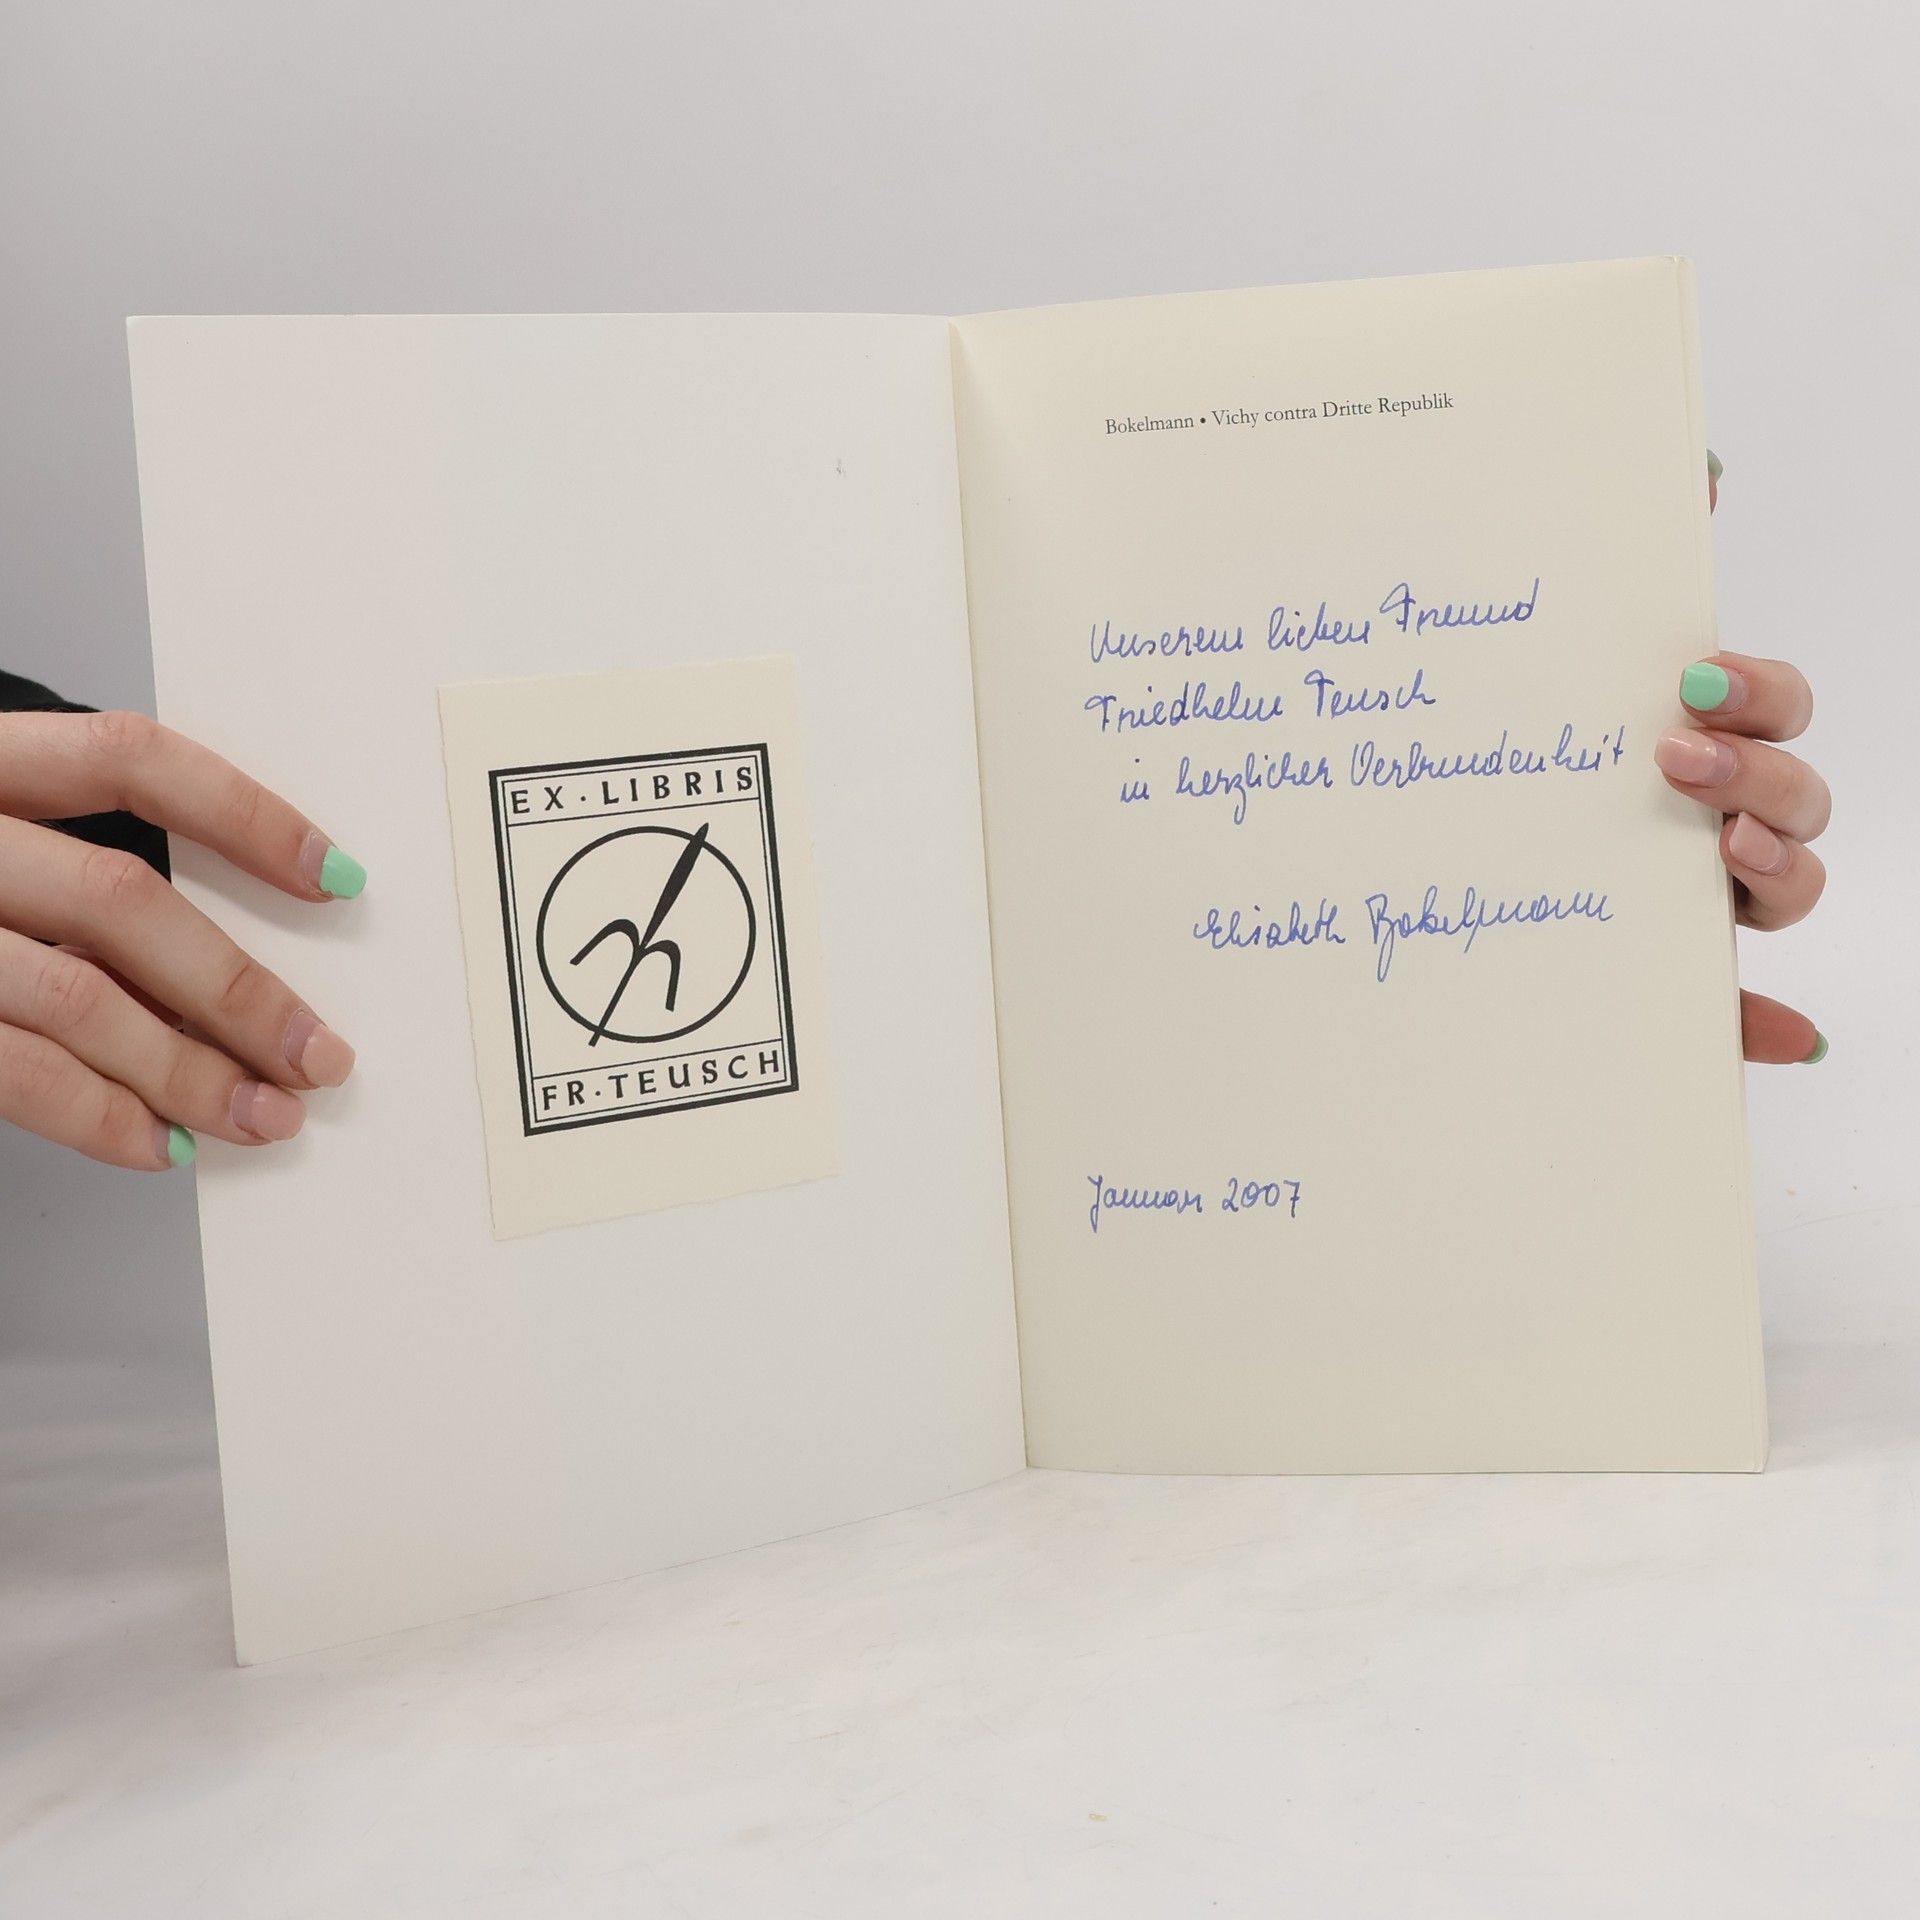 EX · LIBRIS
FR · TEUSCH
Bokelmann • Vichy contra Dritte Republik
Unserem lieben Freund
Friedhelm Teusch
in herzlicher Verbundenheit
Elisabeth Bokelmann
Januar 2007